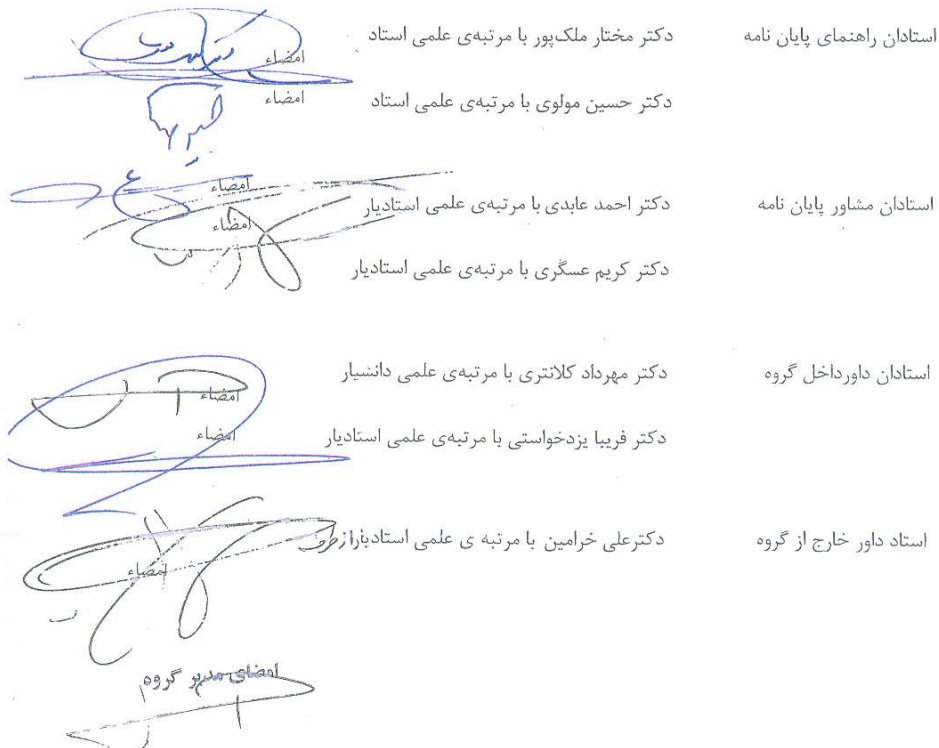 استادان راهنمای پایان نامه دکتر مختار ملک‌پور با مرتبه‌ی علمی استاد امضاء
دکتر حسین مولوی با مرتبه‌ی علمی استاد امضاء
امضاء
استادان مشاور پایان نامه دکتر احمد عابدی با مرتبه‌ی علمی استادیار امضاء
دکتر کریم عسگری با مرتبه‌ی علمی استادیار
استادان داورداخل گروه دکتر مهرداد کلانتری با مرتبه‌ی علمی دانشیار امضاء
دکتر فریبا یزدخواستی با مرتبه‌ی علمی استادیار امضاء
استاد داور خارج از گروه دکترعلی خرامین با مرتبه ی علمی استادیار از طرف
امضاء
امضای مدیر گروه